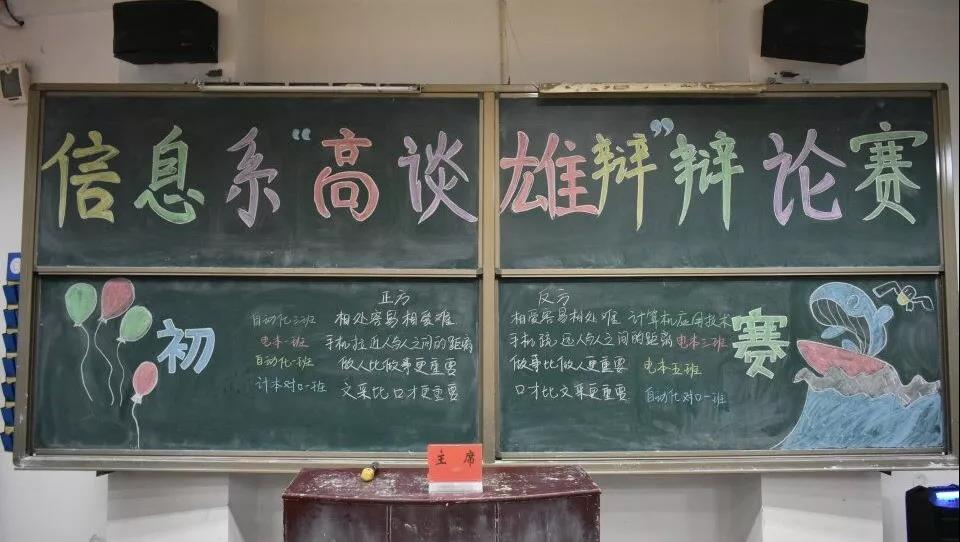 信息系“高谈雄辩”辩论赛
初
正方
自动化三班 相处容易相爱难
电本一班 手机拉近人与人之间的距离
自动化一班 做人比做事更重要
计本对口一班 文采比口才更重要
反方
相爱容易相处难 计算机应用技术
手机疏远人与人之间的距离 电本二班
做事比做人更重要 电本五班
口才比文采更重要 自动化对口一班
赛
主席